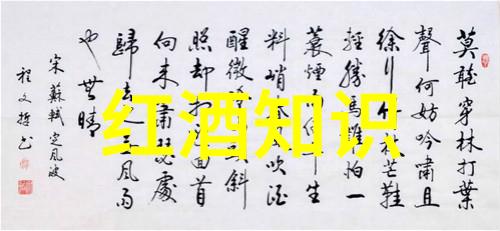 红酒知识
莫聽穿林打葉
聲何妨吟嘯且
徐行竹杖芒鞋
輕勝馬誰怕一
蓑煙雨任平生
料峭春風吹酒
醒微冷山頭斜
照却相迎回首
向来蕭瑟處
歸去也无風雨
也無晴
宋 蘇軾 定風波
程文 书